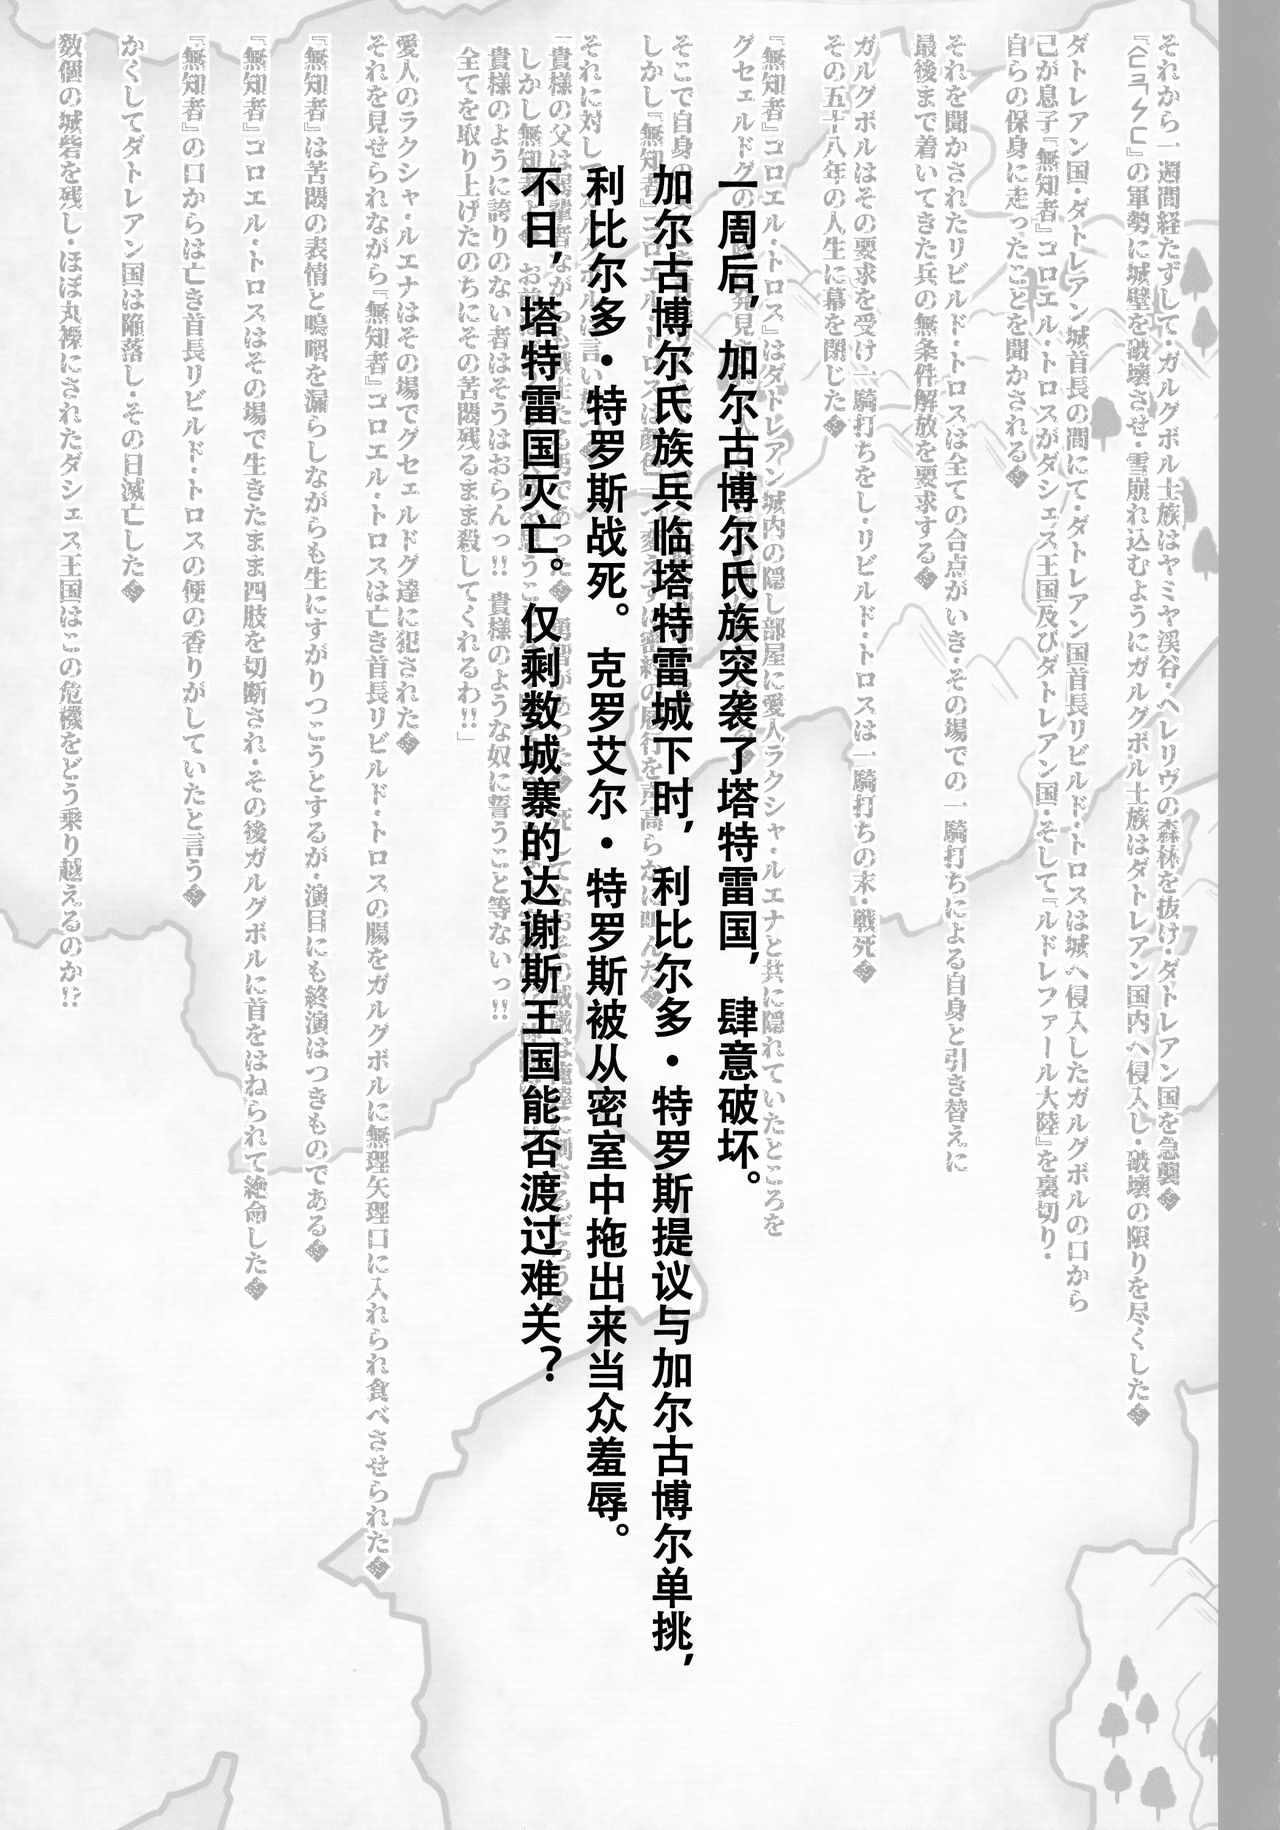 それから一週間経たずして・ガルグボル士族はヤミヤ渓谷・ヘレリヴの森林を抜け・ダトレアン国を急襲
の軍勢に城壁を破壊させ・雪崩れ込むようにガルグボル士族はダトレアン国内へ侵入し・破壊の限りを尽くした
ダトレアン国・ダトレアン城首長の間にて・ダトレアン国首長リビルド・トロスは城へ侵入したガルグボルの口から
己が息子『無知者』コロエル・トロスがダシェス王国及びダトレアン国・そして『ルドレファール大陸』を裏切り・
自らの保身に走ったことを聞かされる
それを聞かされたリビルド・トロスは全ての合点がいき・その場での一騎打ちによる自身と引き替えに
最後まで着いてきた兵の無条件解放を要求する
ガルグボルはその要求を受け一騎打ちをし・リビルド・トロスは一騎打ちの末・戦死
その五十八年の人生に幕を閉じた
『無知者』コロエル・トロス』はダトレアン城内の隠し部屋に愛人ラクシャ・ルエナと共に隠れていたところを
グセェルドグの
一周后，加尔古博尔氏族突袭了塔特雷国，肆意破坏。
加尔古博尔氏族兵临塔特雷城下时，利比尔多・特罗斯提议与加尔古博尔单挑，
利比尔多・特罗斯战死。克罗艾尔・特罗斯被从密室中拖出来当众羞辱。
不日，塔特雷国灭亡。仅剩数城寨的达谢斯王国能否渡过难关？
そこで自身の
しかし『無知者』コロエル・トロスは顔色
を声高らかに叫んだ
それに対し
「貴様の父は
しかし無知者よ
貴様のように誇りのない者はそうはおらんっ!!貴様のような奴に誓うこと等ないっ!!
全てを取り上げたのちにその苦悶残るまま殺してくれるわ!!」
愛人のラクシャ・ルエナはその場でグセェルドグ達に犯された
それを見せられながら『無知者』コロエル・トロスは亡き首長リビルド・トロスの腸をガルグボルに無理矢理口に入れられ食べさせられた
『無知者』は苦悶の表情と嗚咽を漏らしながらも生にすがりつこうとするが・演目にも終演はつきものである
『無知者』コロエル・トロスはその場で生きたまま四肢を切断され・その後ガルグボルに首をはねられて絶命した
『無知者』の口からは亡き首長リビルド・トロスの便の香りがしていたと言う
かくしてダトレアン国は陥落し・その日滅亡した
数個の城砦を残し・ほぼ丸裸にされたダシェス王国はこの危機をどう乗り越えるのか!?